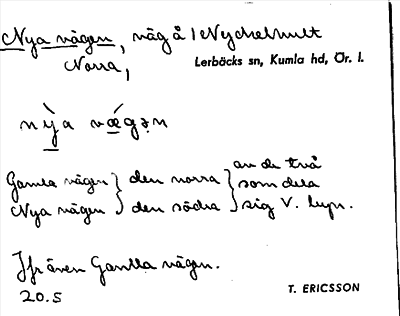 Nya vägen, väg å / Nyckelhult
Norra,
Lerbäcks sn, Kumla hd, Ör. l.
nỳa vǽgən
Gamla vägen } den norra } av de två
Nya vägen } den södra } som dela
sig V. byn.
Jfr även Gamla vägen.
20.5
T. ERICSSON